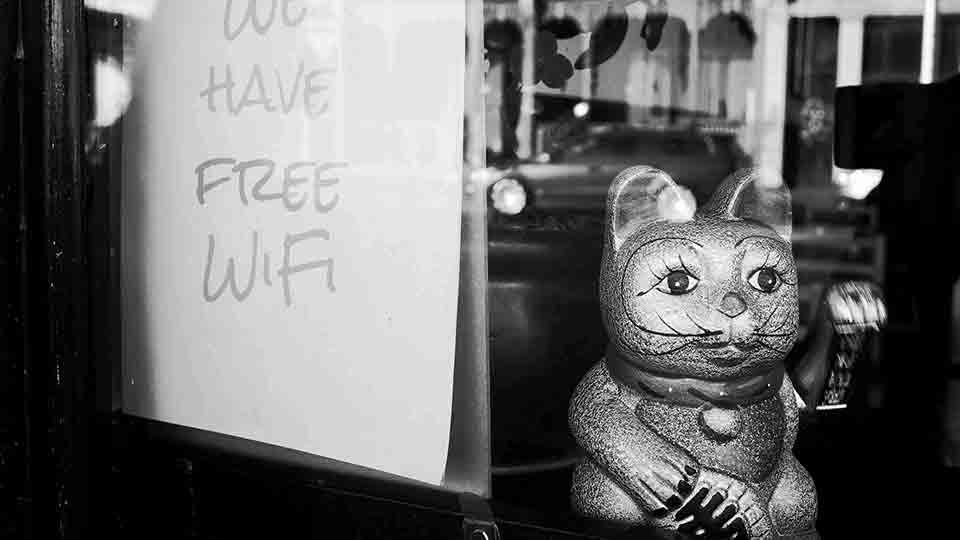 WE
HAVE
FREE
WIFI